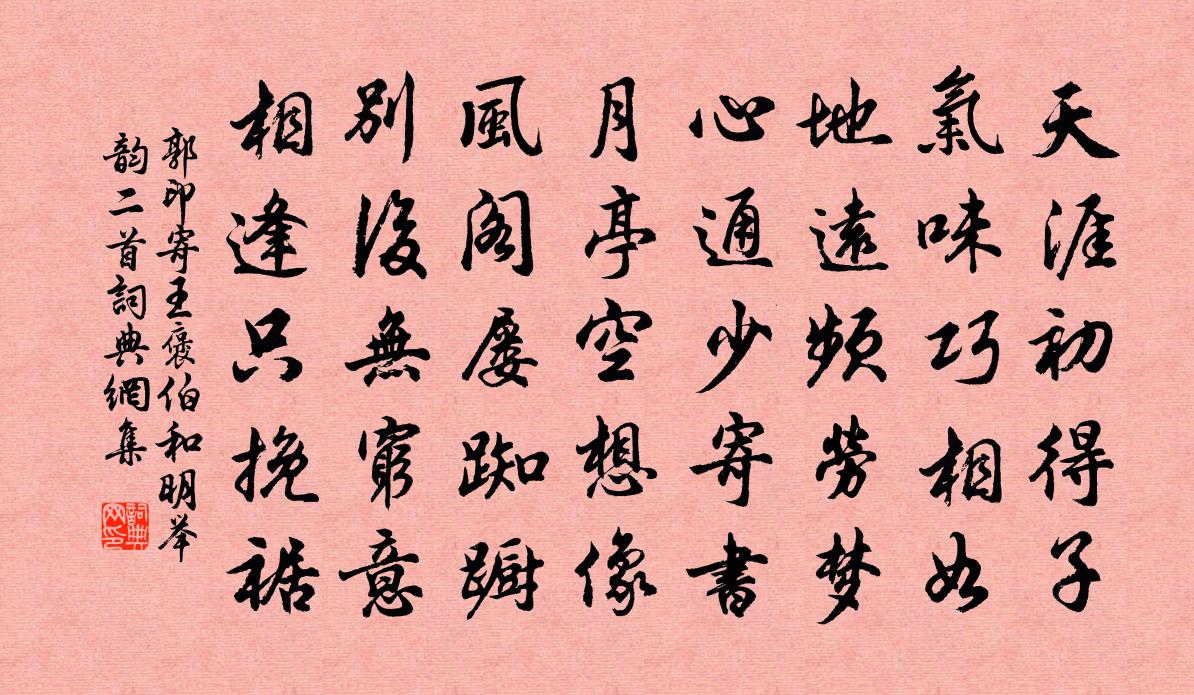 天涯初得子
氣味巧相如
地遠頻勞梦
心通少寄書
月亭空想像
風閣屡踟蹰
別後無窮意
相逢只挽裾
郭印寄王褒伯和明举
韵二首詞典網集
詞典网印